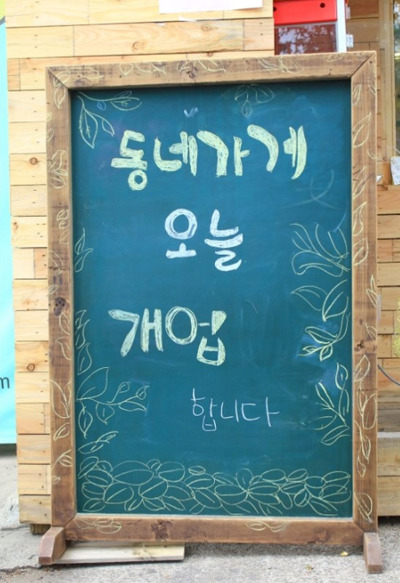 동네가게
오늘
개업
합니다
m